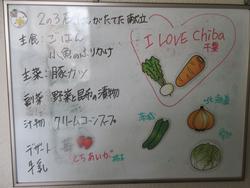 2の3 がたてた献立
主食 ごはん
小魚のふりかけ
主菜 豚カツ
副菜 野菜と昆布の漬物
汁物 クリームコーンスープ
デザート 苺
とちあいか
牛乳
I LOVE Chiba
千葉
北海道
茨城